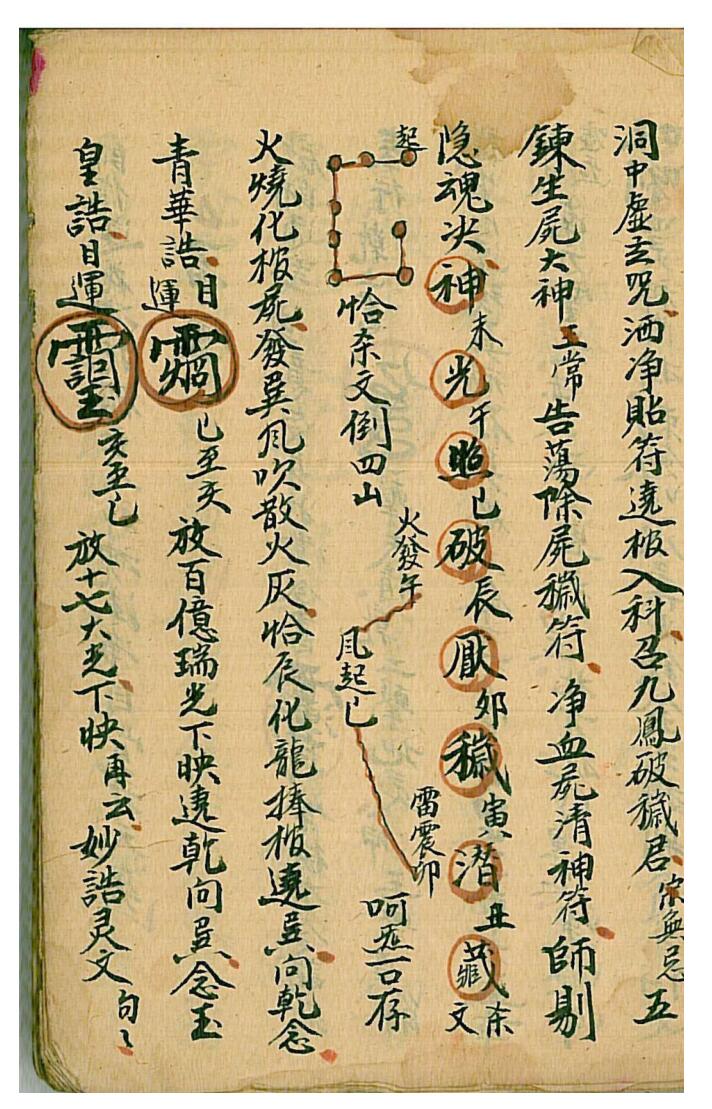 洞中虛玄咒洒净貼符遶柩入科召九鳳破穢君宋無忌五
鍊生屍大神三常告蕩除屍穢符净血屍清神符師剔
隐魂决神未光午照巳破辰厭卯穢寅潛丑藏
文
起
恰 文倒四山
火發午
風起巳
雷震卯
呵 存
火燒化柩屍發巽風吹散火灰恰辰化龍捧柩遶巽向乾念
青華誥目運 巳至亥放百億瑞光下映遶乾向巽念玉
皇誥目運 亥至巳放十七大光下映再云妙誥灵文句〻